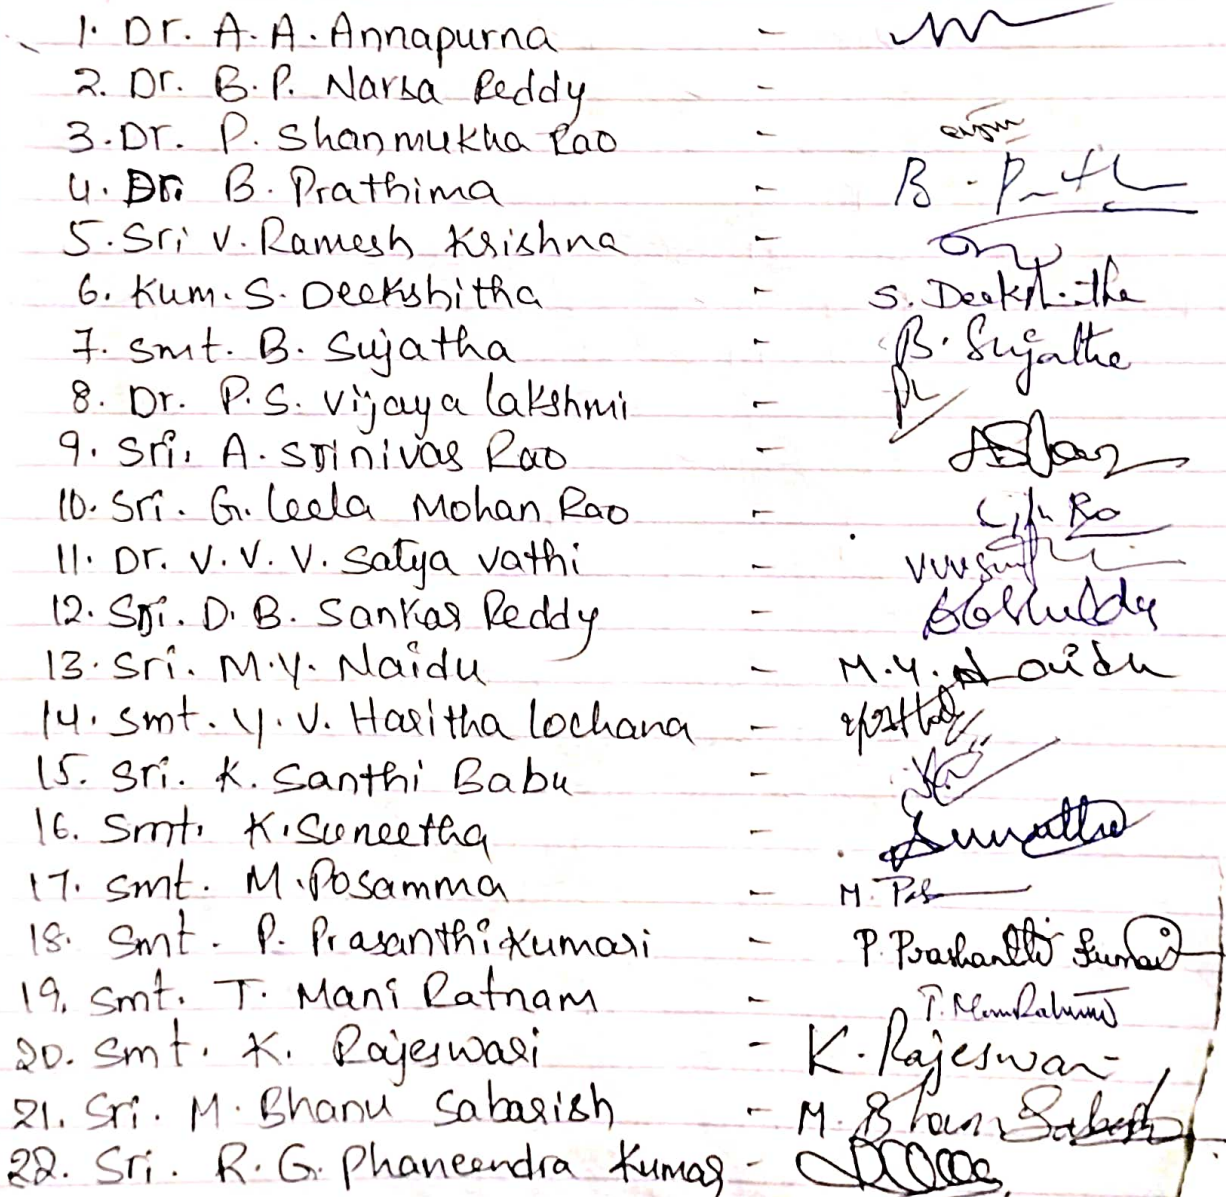 1. Dr. A. A. Annapurna -
2. Dr. B. P. Narsa Reddy -
3. Dr. P. Shanmukha Rao -
4. Dr. B. Prathima - B.
5. Sri V. Ramesh Krishna -
6. Kum. S. Deekshitha - S. Deekshitha
7. Smt. B. Sujatha - B. Sujatha
8. Dr. P. S. Vijaya Lakshmi -
9. Sri. A. Srinivas Rao -
10. Sri. G. Leela Mohan Rao -
11. Dr. V. V. V. Satya vathi -
12. Sri. D. B. Sankar Reddy -
13. Sri. M. Y. Naidu - M. Y. Naidu
14. Smt. Y. V. Haritha lochana -
15. Sri. K. Santhi Babu -
16. Smt. K. Suneetha -
17. Smt. M. Posamma - M.
18. Smt. P. Prasanthi Kumari - P. Prashanthi Kumari
19. Smt. T. Mani Ratnam - T. Mani Ratnam
20. Smt. K. Rajeswari - K. Rajeswari
21. Sri. M. Bhanu Sabarish - M. Bhanu Sabarish
22. Sri. R. G. Phaneendra Kumar -